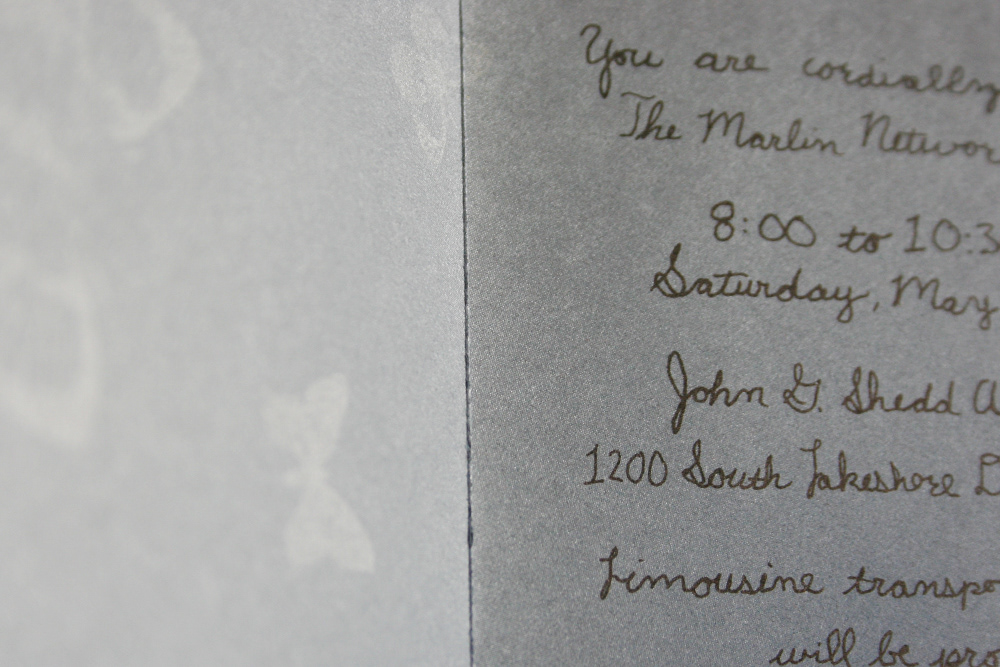 You are cordially
The Marlin Networ
8:00 to 10:3
Saturday, May
John G. Shedd A
1200 South Lakeshore D
Limousine transpo
will be pro